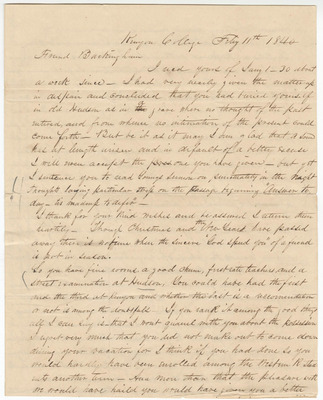 Kenyon College Feby 11th 1840
Friend Buckingham
I recd yours of Jany 1 - 30 about
a week since - I had very nearly given the matter up
in despair and concluded that you had buried yourself
in old Hudson as in the grave where no thought of the past
intrude and from whence no intimation of the present could
come forth - But be it as it may I am glad that a
has at length arisen and in default of a better excuse
I will even accept the poor one you have given - but yet
I sentence you to read Youngs on in the Night
Thoughts laying particular stress on the passage beginning
day - tis madness to defer -
I thank for your kind wishes and be assured I return them
- Though Christmas and New Years have passed
away there is no time when the sincere God speed you of a friend
is not in season.
So you have given a good , first rate teachers, and a
strict examination at Hudson. You would have had the first
and the third at Kenyon and whether the last is a recommendation
or not is among the doubtful. If you rank it among the good
all I can say is that I wont quarrel with you about the
I regret very much that you did not make out to come down
during your vacation for I think if you had done so you
would hardly have been enrolled among the Western R
another term - And more than that the pleasure
we would have had you would have given you a better